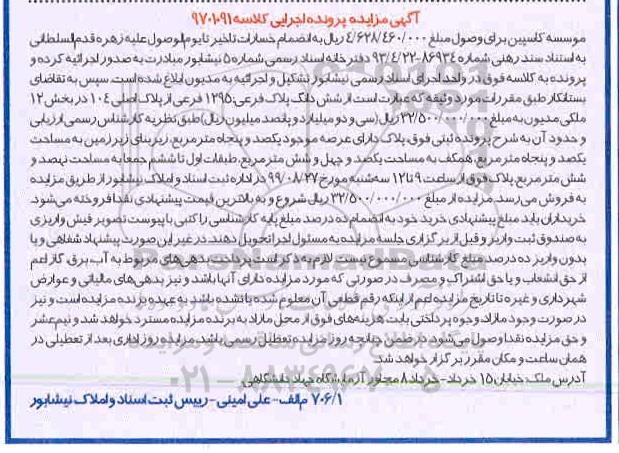 آگهی مزایده پرونده اجرایی کلاسه ۹۷۰۱۰۹۱
موسسه کاسپین برای وصول مبلغ ۴/۶۲۸/۴۶۰/۰۰۰ ریال به انضمام خسارات تاخیر تا یوم الوصول علیه زهره قدم السلطانی
به استناد سند رهنی شماره ۸۶۹۳۴-۹۳/۴/۲۲ دفترخانه اسناد رسمی شماره ۵ نیشابور مبادرت به صدور اجرائیه کرده و
پرونده به کلاسه فوق در واحد اجرای اسناد رسمی نیشابور تشکیل و اجرائیه به مدیون ابلاغ شده است. سپس به تقاضای
بستانکار طبق مقررات مورد وثیقه که عبارت است از شش دانگ پلاک فرعی: ۱۲۹۵ فرعی از پلاک اصلی ۱۰۴ در بخش ۱۲
ملکی مدیون به مبلغ ۳۲/۵۰۰/۰۰۰/۰۰۰ ریال (سی و دو میلیارد و پانصد میلیون ریال) طبق نظریه کارشناس رسمی ارزیابی
و حدود آن به شرح پرونده ثبتی فوق، پلاک دارای عرصه موجود یکصد و پنجاه متر مربع، زیربنای زیرزمین به مساحت
یکصد و پنجاه متر مربع، همکف به مساحت یکصد و چهل و شش متر مربع، طبقات اول تا ششم جمعا به مساحت نهصد و
شش متر مربع پلاک فوق از ساعت ۹ تا ۱۲ سه شنبه مورخ ۹۹/۰۸/۲۷ در اداره ثبت اسناد و املاک نیشابور از طریق مزایده
به فروش می رسد. مزایده از مبلغ ۳۲/۵۰۰/۰۰۰/۰۰۰ ریال شروع و به بالاترین قیمت پیشنهادی نقدا فروخته می شود.
خریداران باید مبلغ پیشنهادی خرید خود به انضمام ده درصد مبلغ پایه کارشناسی را کتبی با پیوست تصویر فیش واریزی
به صندوق ثبت واریز و قبل از برگزاری جلسه مزایده به مسئول اجرا تحویل دهند. در غیر این صورت پیشنهاد شفاهی و یا
بدون واریز ده درصد مبلغ کارشناسی مسموع نیست. لازم به ذکر است پرداخت بدهی های مربوط به آب، برق، گاز اعم
از حق انشعاب و یا حق اشتراک و مصرف در صورتی که مورد مزایده دارای آنها باشد و نیز بدهی های مالیاتی و عوارض
شهرداری و غیره تا تاریخ مزایده اعم از اینکه رقم قطعی آن معلوم شده یا نشده باشد به عهده برنده مزایده است و نیز
در صورت وجود مازاد، وجوه پرداختی بابت هزینه های فوق از محل مازاد به برنده مزایده مسترد خواهد شد و نیم عشر
و حق مزایده نقدا وصول می شود. در ضمن چنانچه روز مزایده تعطیل رسمی باشد، مزایده روز اداری بعد از تعطیلی در
همان ساعت و مکان مقرر برگزار خواهد شد.
آدرس ملک: خیابان ۱۵ خرداد - خرداد ۸ مجاور آزمایشگاه جهاد دانشگاهی
۷۰۶/۱ م الف - علی امینی - رییس ثبت اسناد و املاک نیشابور